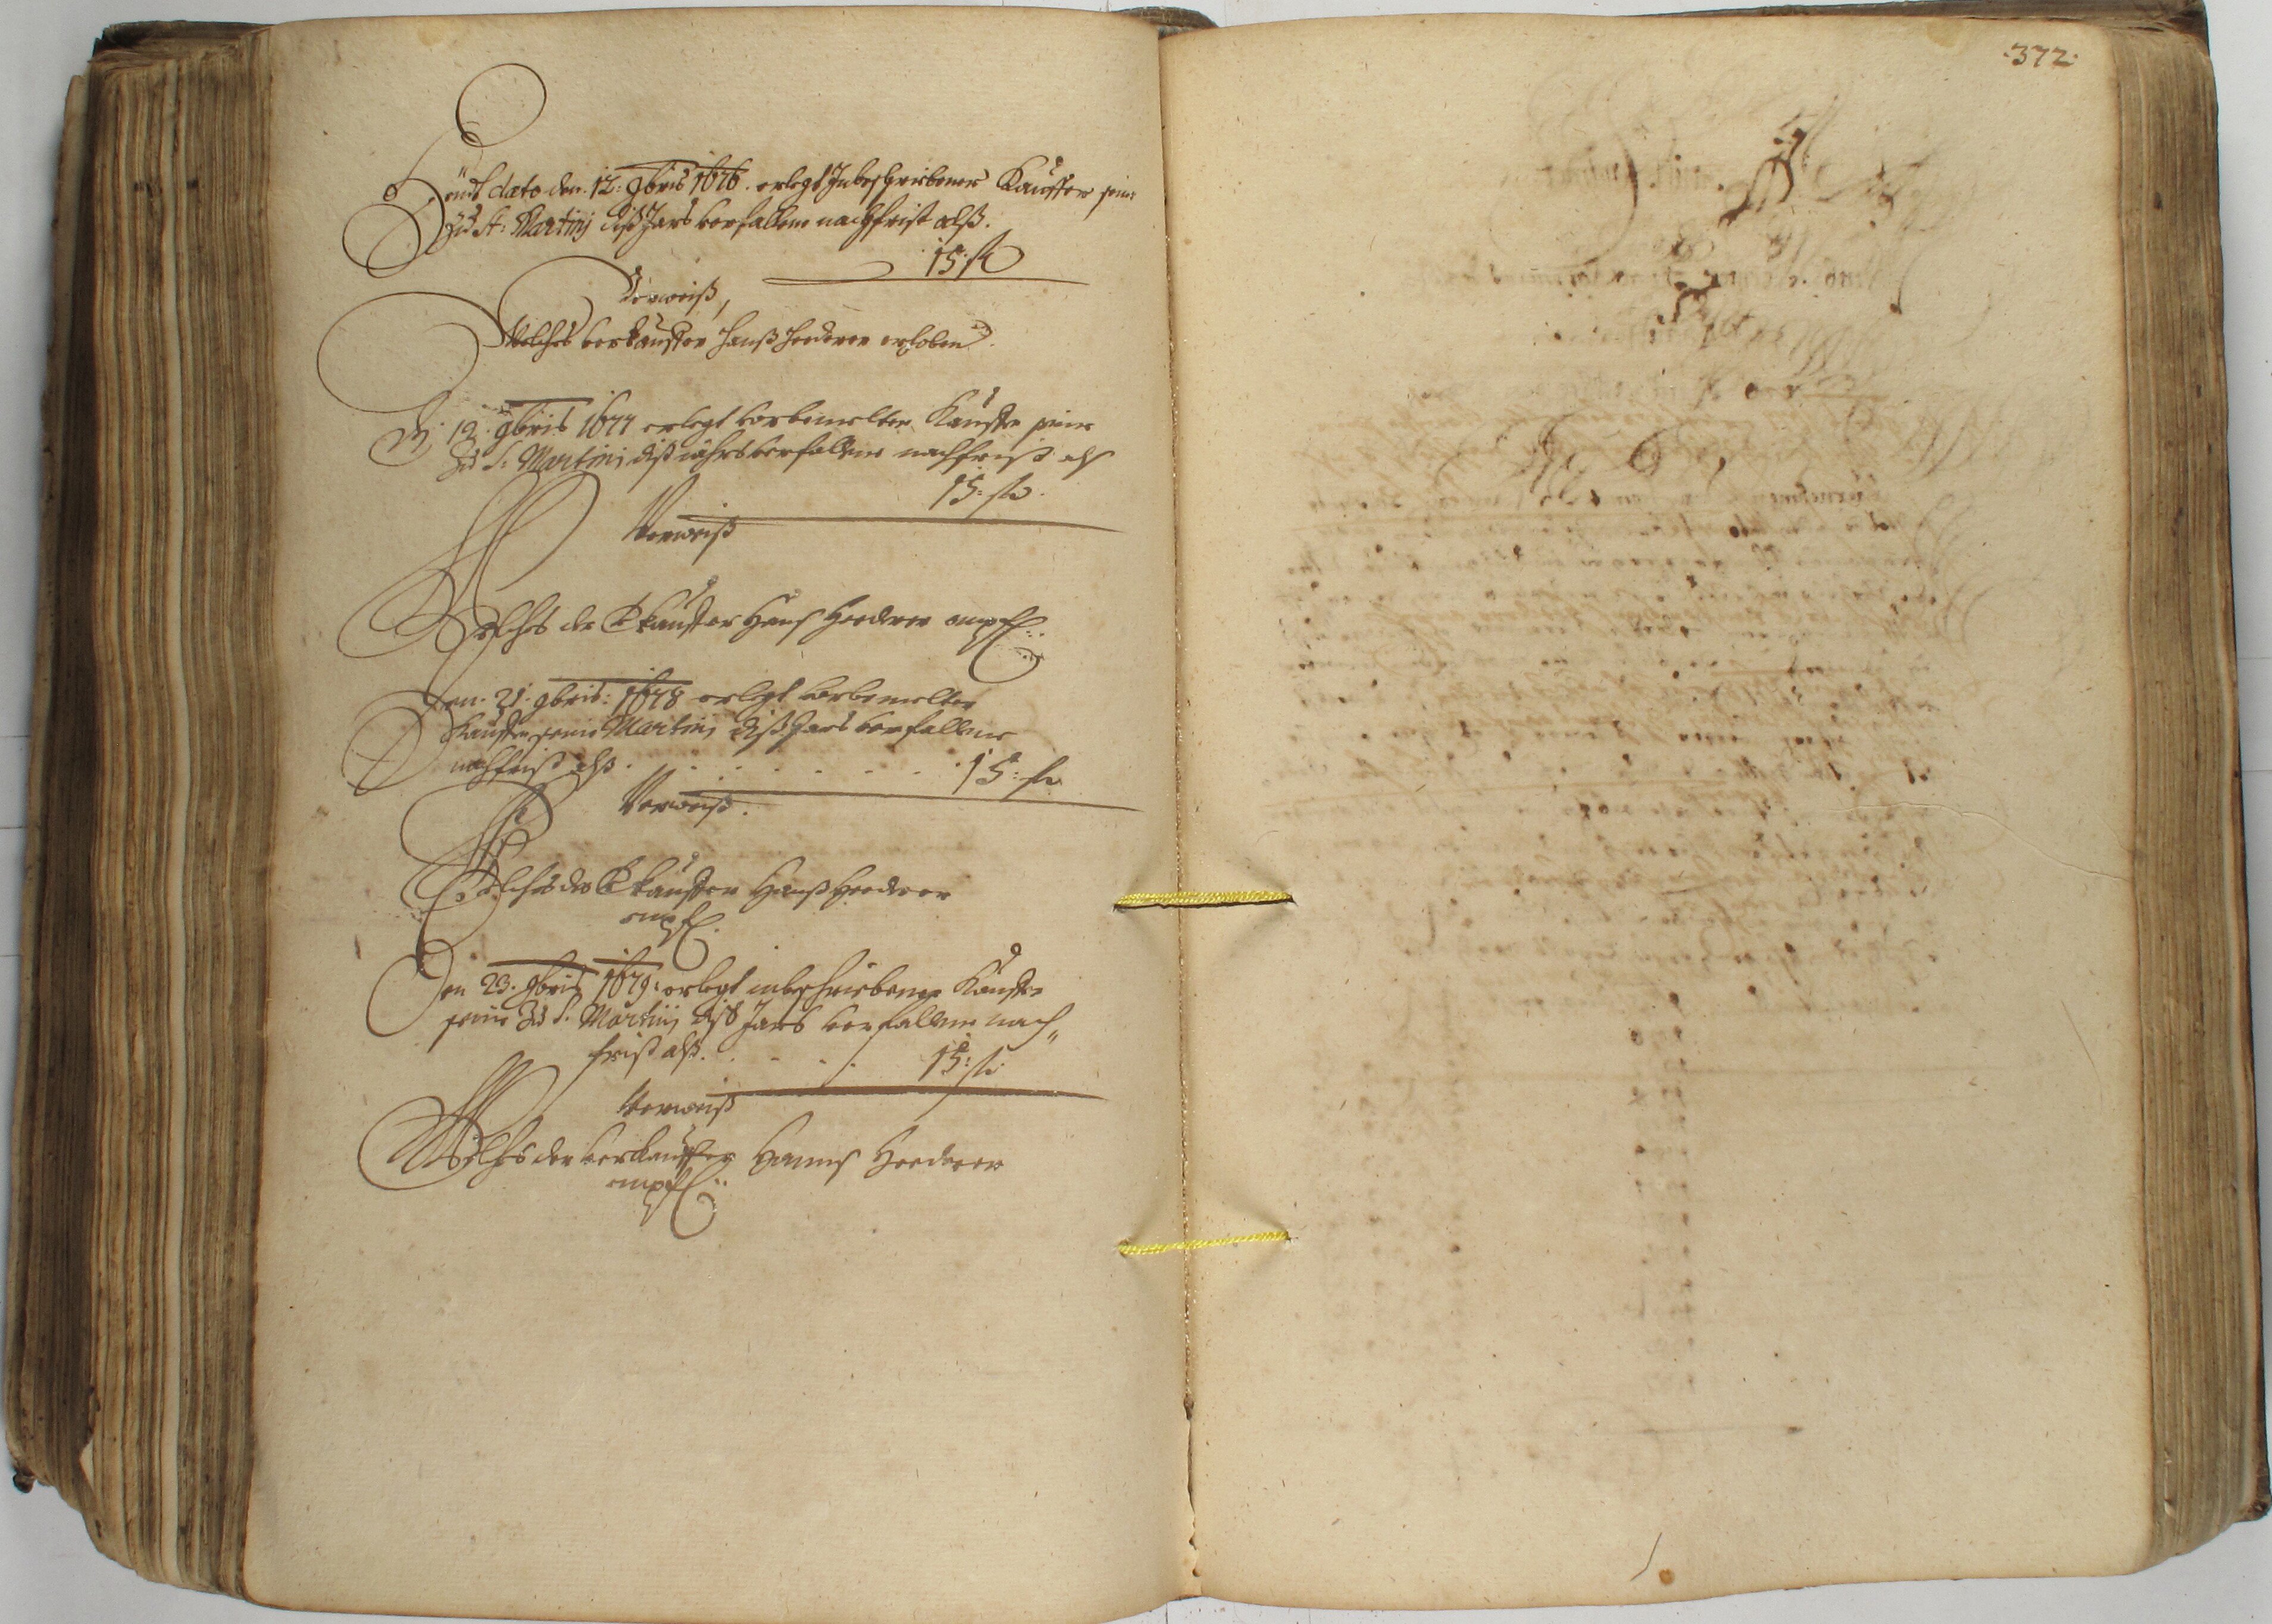 Heüt dato den. 12: 9bris 1676. erlegt Inbeschribener Kauffer seine
Zu St: Martinj diß Jars verfallene nachfrist alß.
15: fl
Verweiß,
Welches verkauffer Hanß Herderer erhoben.
Dj: 19. 9bris 1677 erlegt vorbemelter Kauffer seine
Zu S: Martini diß iahrs verfallene nachfrist als
15: fl.
Verweiß
Welches der Vkauffer Hans Herderer empf:
Den. 21. 9bris: 1678 erlegt vorbemelter
Kauffer seine Martini diß Jars verfallene
nachfrist alß . . . . . . . 15: fl.
Verweiß.
Welches der Vkauffer Hanß Herderer
empf.
Den 23. 9bris 1679: erlegt inbeschriebener Kauffer
seine Zu S. Martinj diß Jars verfallene nach„
frist alß. . . . . 15: fl:
Verweiß
Welches der verkauffer Hanns Herderer
empf:
.372.